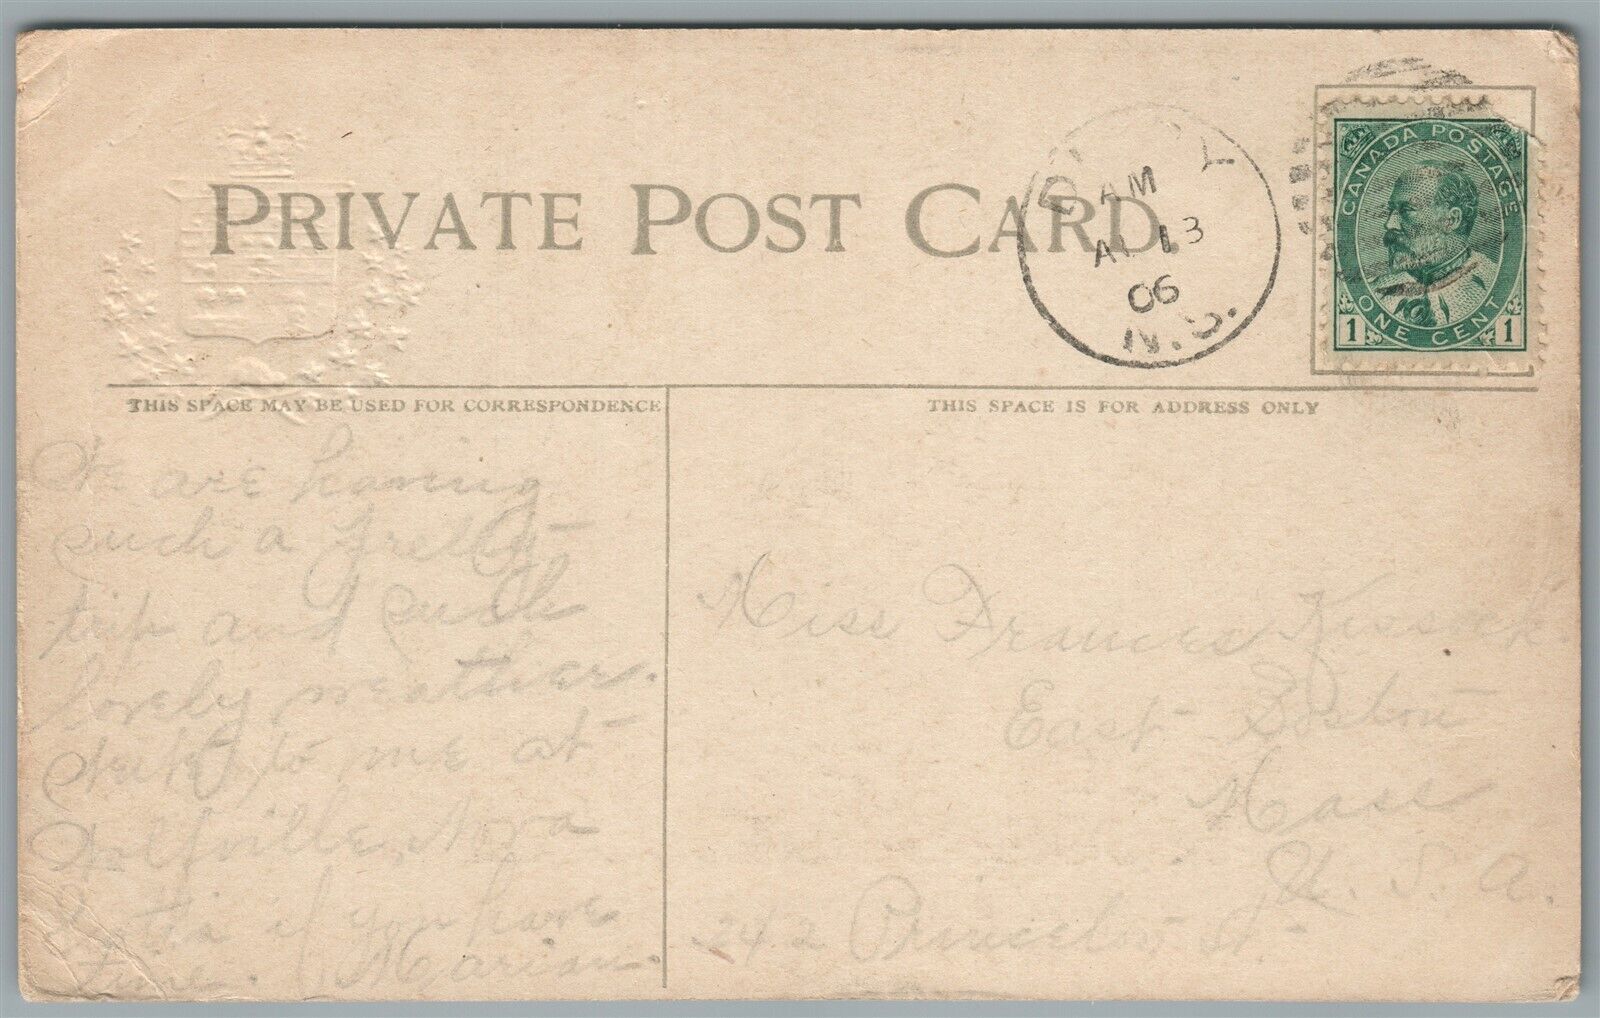 PRIVATE POST CARD.
D Y
AM
AU 13
06
N.S.
CANADA POSTAGE
1 ONE CENT 1
THIS SPACE MAY BE USED FOR CORRESPONDENCE
THIS SPACE IS FOR ADDRESS ONLY
We are having
such a pretty
trip and such
lovely weather.
Write to me at
Wolfville, Nova
Scotia if you have
time. Marian.
Miss Frances Kissick.
East Boston
Mass
U. S. A.
242 Princeton St.